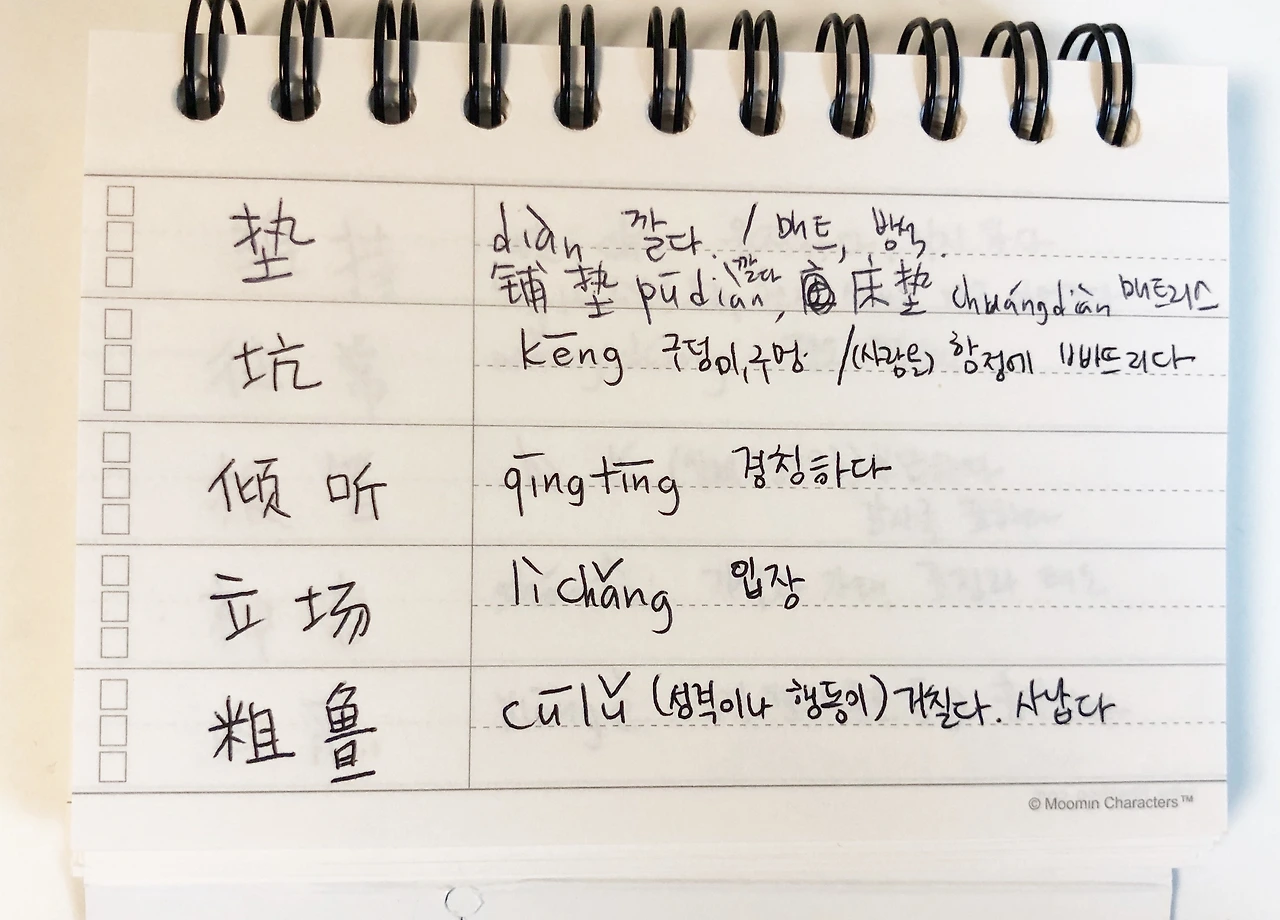 垫 diàn 깔다. / 매트, 방석.
铺垫 pūdiàn 깔다, 床垫 chuángdiàn 매트리스
坑 kēng 구덩이, 구멍. /(사람을) 함정에 빠뜨리다
倾听 qīngtīng 경청하다
立场 lìchǎng 입장
粗鲁 cūlǔ (성격이나 행동이) 거칠다. 사납다
© Moomin Characters™